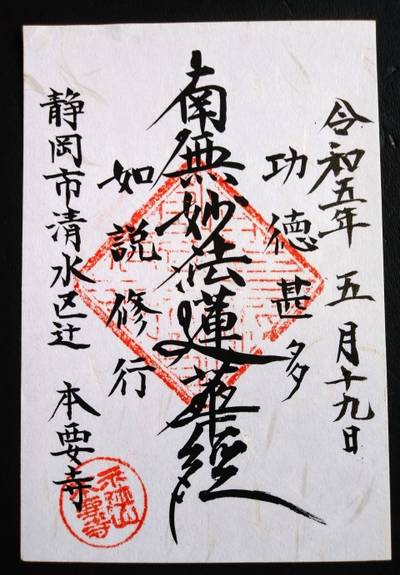 令和五年 五月十九日
功徳甚多
南無妙法蓮華経
如説修行
静岡市清水区辻 本要寺